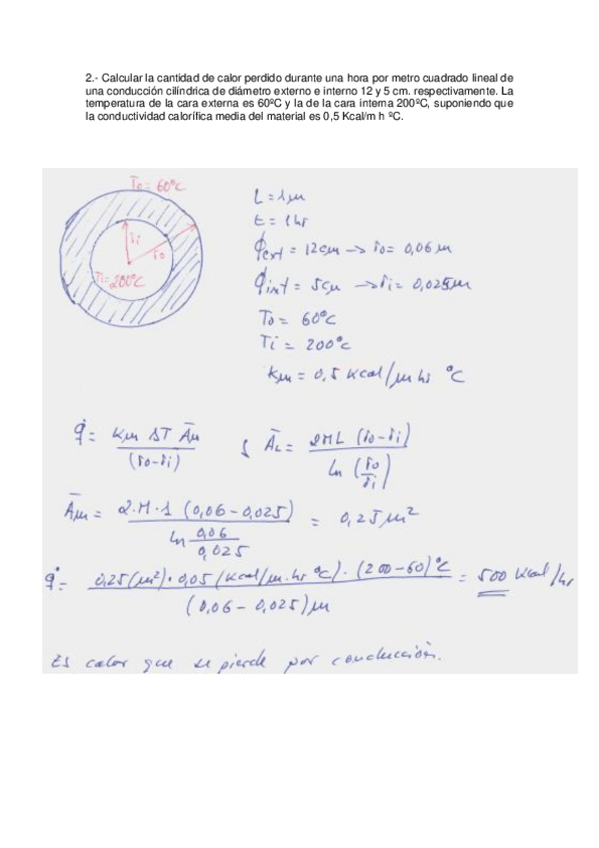 2.- Calcular la cantidad de calor perdido durante una hora por metro cuadrado lineal de
una conducción cilíndrica de diámetro externo e interno 12 y 5 cm. respectivamente. La
temperatura de la cara externa es 60ºC y la de la cara interna 200ºC, suponiendo que
la conductividad calorífica media del material es 0,5 Kcal/m h ºC.
To= 60°C
ri
ro
Ti= 200°C
L = 1m
t = 1hr
ϕext = 12cm → ro = 0,06 m
ϕint = 5cm → ri = 0,025m
To = 60°C
Ti = 200°C
km = 0,5 Kcal/m hr °C
q̇ = Km ΔT Ām / (ro-ri) ; ĀL = 2πL (ro-ri) / ln (ro/ri)
Ām = 2·π·1 (0,06-0,025) / ln 0,06/0,025 = 0,25m²
q̇ = 0,25(m²)·0,05(Kcal/m·hr °C)·(200-60)°C / (0,06-0,025)m = 500 Kcal/hr
Es calor que se pierde por conducción.